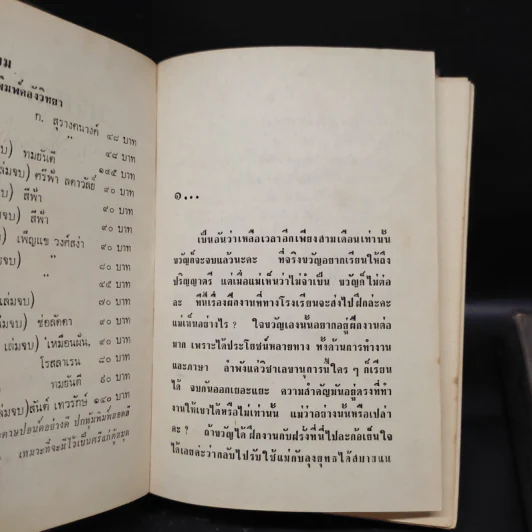 ยม
พิมพ์คลังวิทยา
ก. สุรางคนางค์ ๔๘ บาท
" ๔๘ บาท
บ) ทมยันตี ๑๔๕ บาท
เล่มจบ) ตรีฟ้า ลดาวัลย์ ๙๐ บาท
จบ) สีฟ้า ๙๐ บาท
จบ) สีฟ้า ๙๐ บาท
บ) เพ็ญแข วงศ์สง่า ๙๐ บาท
จบ) " ๘๐ บาท
" ๔๕ บาท
เล่มจบ) ๗๐ บาท
จบ) ช่อลัดดา ๙๐ บาท
เล่มจบ) เหมือนฝัน, ๙๐ บาท
โรสลาเรน ๘๐ บาท
ทมยันตี ๙๐ บาท
เล่มจบ) สันต์ เทวรักษ์ ๑๔๐ บาท
กระดาษปอนด์อย่างดี ปกหุ้มพิมพ์สอดสี
เหมาะที่จะมีไว้เป็นศรีแก่ตู้สมุด
๑...
เป็นอันว่าเหลือเวลาอีกเพียงสามเดือนเท่านั้น
ขวัญก็จะจบแล้วนะคะ ที่จริงขวัญอยากเรียนให้ถึง
ปริญญาตรี แต่เมื่อแม่เห็นว่าไม่จำเป็น ขวัญก็ไม่ต่อ
ละ ทีนี้เรื่องฝึกงานที่ทางโรงเรียนจะส่งไปฝึกล่ะคะ
แม่เห็นอย่างไร? ใจขวัญเองนั้นอยากอยู่ฝึกงานต่อ
มาก เพราะได้ประโยชน์หลายทาง ทั้งด้านการทำงาน
และภาษา ลำพังแค่วิชาเลขานุการนี่ใคร ๆ ก็เรียน
ได้ จบกันออกเยอะแยะ ความสำคัญมันอยู่ตรงที่ทำ
งานให้เขาได้หรือไม่เท่านั้น แม่ว่าอย่างนั้นหรือเปล่า
คะ? ถ้าขวัญได้ฝึกงานกับฝรั่งที่นี่ไปละก้อเย็นใจ
ได้เลยค่ะว่ากลับไปรับใช้แม่กับลุงยุทธได้สบายแน